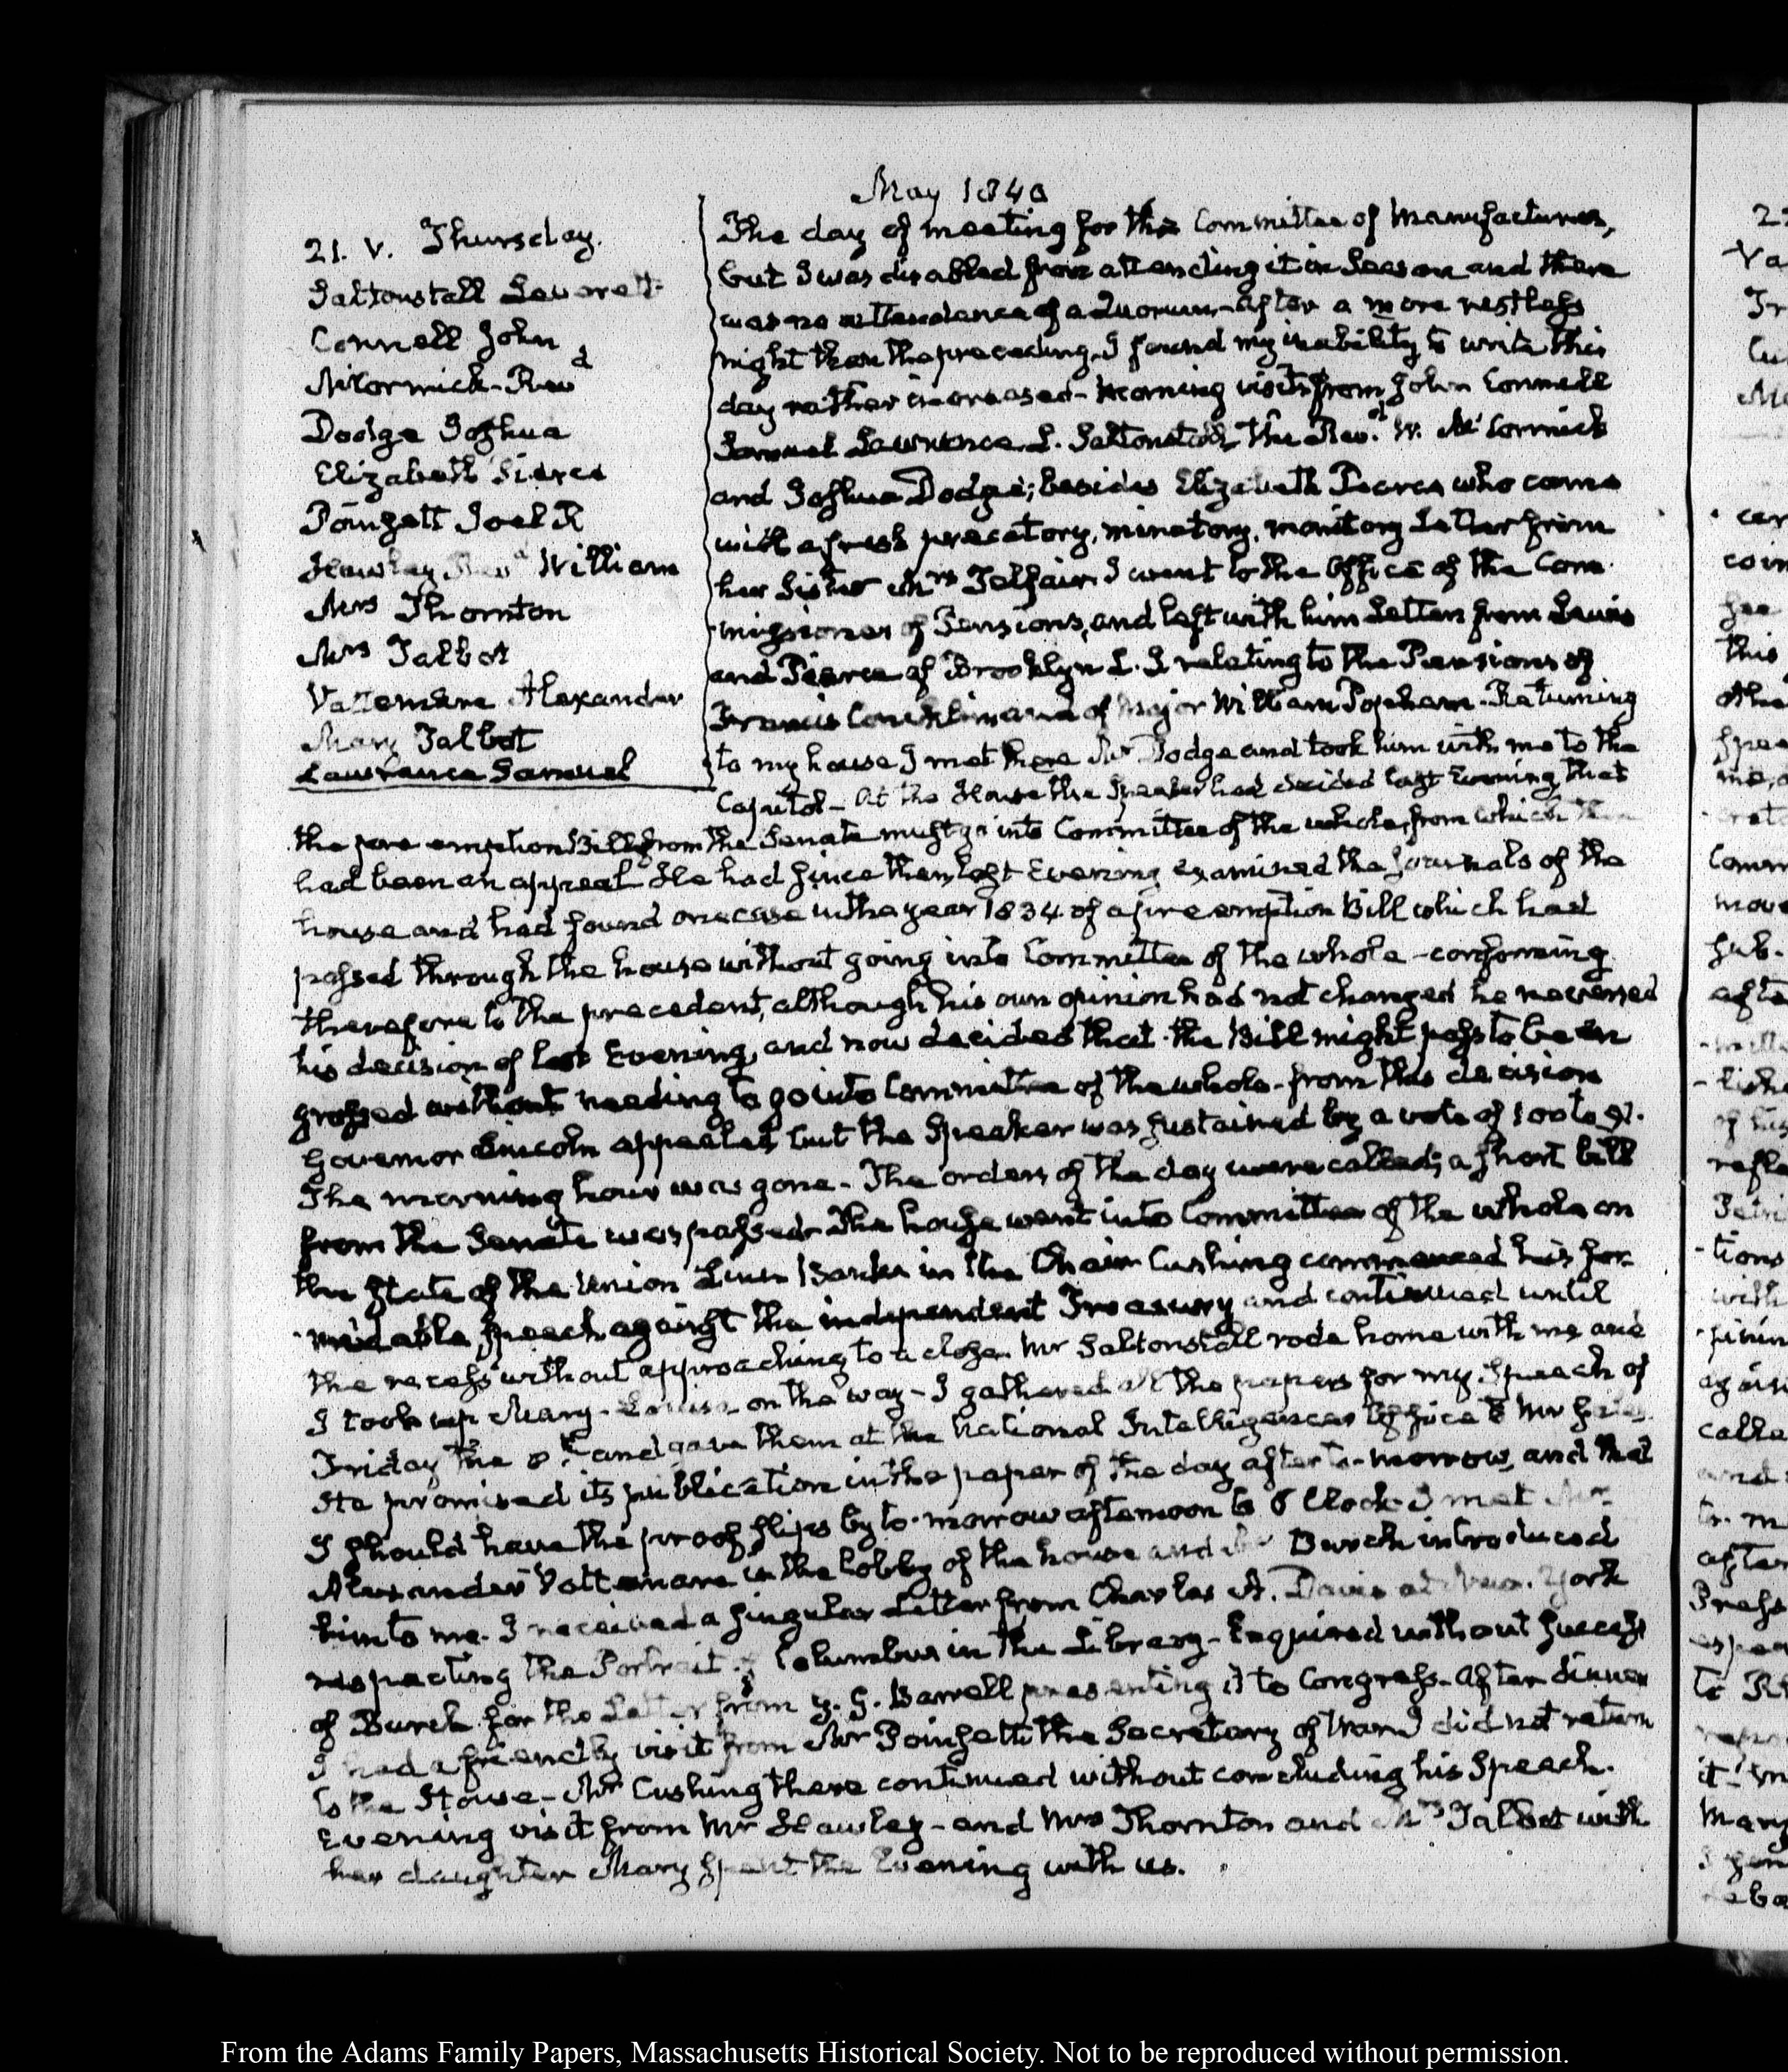 May 1840
21. V. Thursday.
Saltonstall Leverett
Connell John
McCormick Revd
Dodge Joshua
Elizabeth Pierce
Poinsett Joel R
Hawley Revd William
Mrs Thornton
Mrs Talbot
Vattemare Alexander
Mary Talbot
Lawrence Samuel
The day of meeting for the Committee of Manufactures,
but I was disabled from attending it in Season and there
was no attendance of a Quorum—after a more restless
night than the preceding, I found my inability to write this
day rather increased—Morning visits from John Connell
Samuel Lawrence, L. Saltonstall, the Revd. W. McCormick
and Joshua Dodge; besides Elizabeth Pierce who came
with a fresh precatory, minatory, monitory Letter from
her Sister Mrs Telfair I went to the Office of the Com-
missioner of Pensions, and left with him Letters from Lewis
and Pierce of Brooklyn L. I relating to the Pensions of
and of Major William Popham. Returning
to my house I met there Mr Dodge and took him with me to the
Capitol—At the House the Speaker had decided last Evening that
the pre emption Bill from the Senate must go into Committee of the whole, from which there
had been an appeal He had since then, last Evening examined the Journals of the
house and had found one case in the year 1834 of a pre emption Bill which had
passed through the house without going into Committee of the whole—conforming
therefore to the precedent, although his own opinion had not changed he reversed
his decision of last Evening, and now decided that the Bill might pass to be en
grossed without needing to go into Committee of the whole—from this decision
Governor Lincoln appealed but the Speaker was sustained by a vote of 100 to 91.
The morning hour was gone—The orders of the day were called; a short bill
from the Senate was passed. The house went into Committee of the whole on
the State of the Union Linn Banks in the Chair Cushing commenced his for-
-midable speech against the independent Treasury and continued until
the recess without approaching to a close. Mr Saltonstall rode home with me and
I took up Mary-Louisa on the way—I gathered all the papers for my Speech of
Friday the 8th and gave them at the National Intelligencer Office to Mr
He promised its publication in the paper of the day after to-morrow, and that
I should have the proof slips by to-morrow afternoon 6 O'Clock I met Mr
Alexander Vattemare in the lobby of the house and Mr Burch introduced
him to me. I received a singular Letter from Charles A. Davis of New-York
respecting the Portrait of Columbus in the Library—Enquired without success
of Burch for the Letter from G. G. Barrell presenting it to Congress—After dinner
I had a friendly visit from Mr Poinsett the Secretary of War I did not return
to the House—Mr Cushing there continued without concluding his Speech.
Evening visit from Mr Hawley—and Mrs Thornton and Mrs Talbot with
her daughter Mary spent the Evening with us.
From the Adams Family Papers, Massachusetts Historical Society. Not to be reproduced without permission.